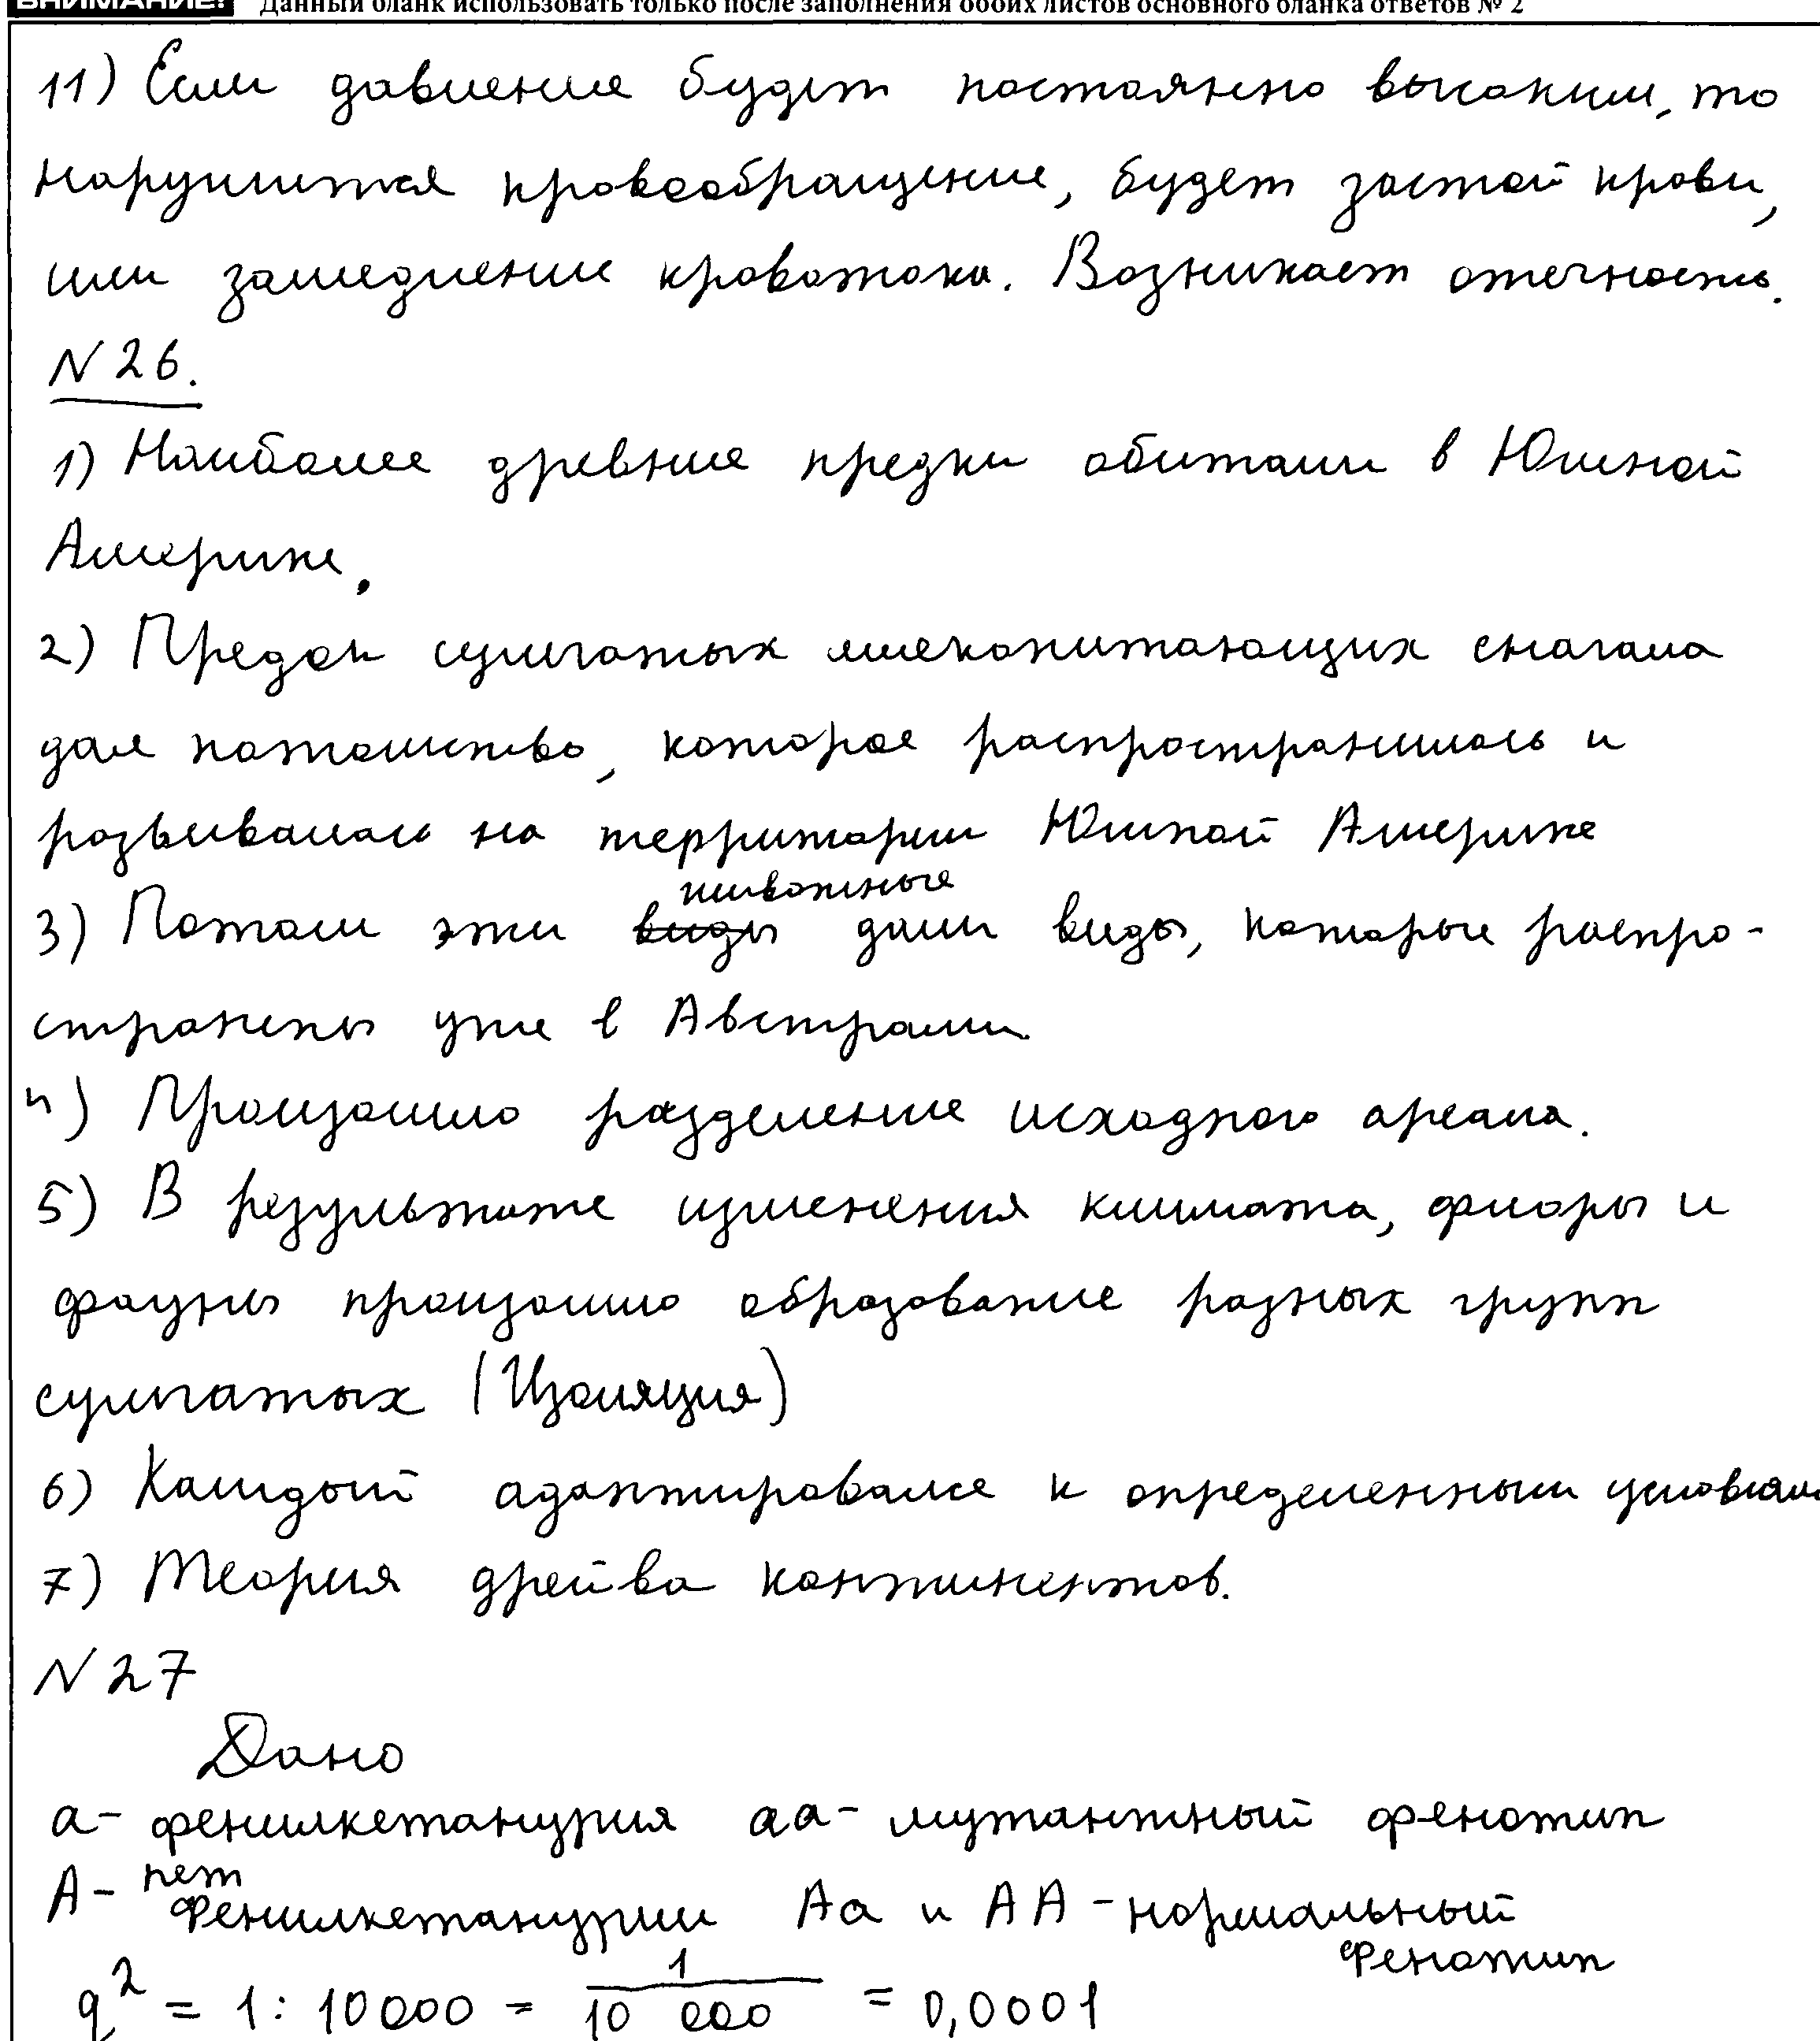 ВНИМАНИЕ! Данный бланк использовать только после заполнения обоих листов основного бланка ответов № 2
11) Если давление будет постоянно высоким, то
нарушится кровообращение, будет застой крови,
или замедление кровотока. Возникает отечность.
N 26.
1) Наиболее древние предки обитали в Южной
Америке.
2) Предок сумчатых млекопитающих сначала
дал потомство, которое распространилось и
развивалась на территории Южной Америке
3) Потом эти виды животные дали виды, которые распро-
странены уже в Австралии
4) Произошло разделение исходного ареала.
5) В результате изменения климата, флоры и
фауны произошло образование разных групп
сумчатых (Изоляция)
6) Каждый адаптировался к определенным условиям
7) Теория дрейва континентов.
N 27
Дано
а - фенилкетанурия аа - мутантный фенотип
А - нет фенилкетанурии Аа и АА - нормальный
фенотип
q² = 1 : 10000 = 1/10 000 = 0,0001